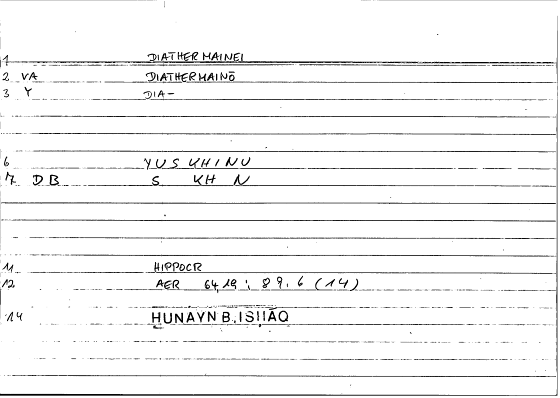 1 DIATHERMAINEI
2 VA DIATHERMAINŌ
3 Y DIA-
6 YUSKHINU
7 DB S KH N
11 HIPPOCR
12 AER 64,19 ; 89.6 (14)
14 ḤUNAYN B. ISḤĀQ